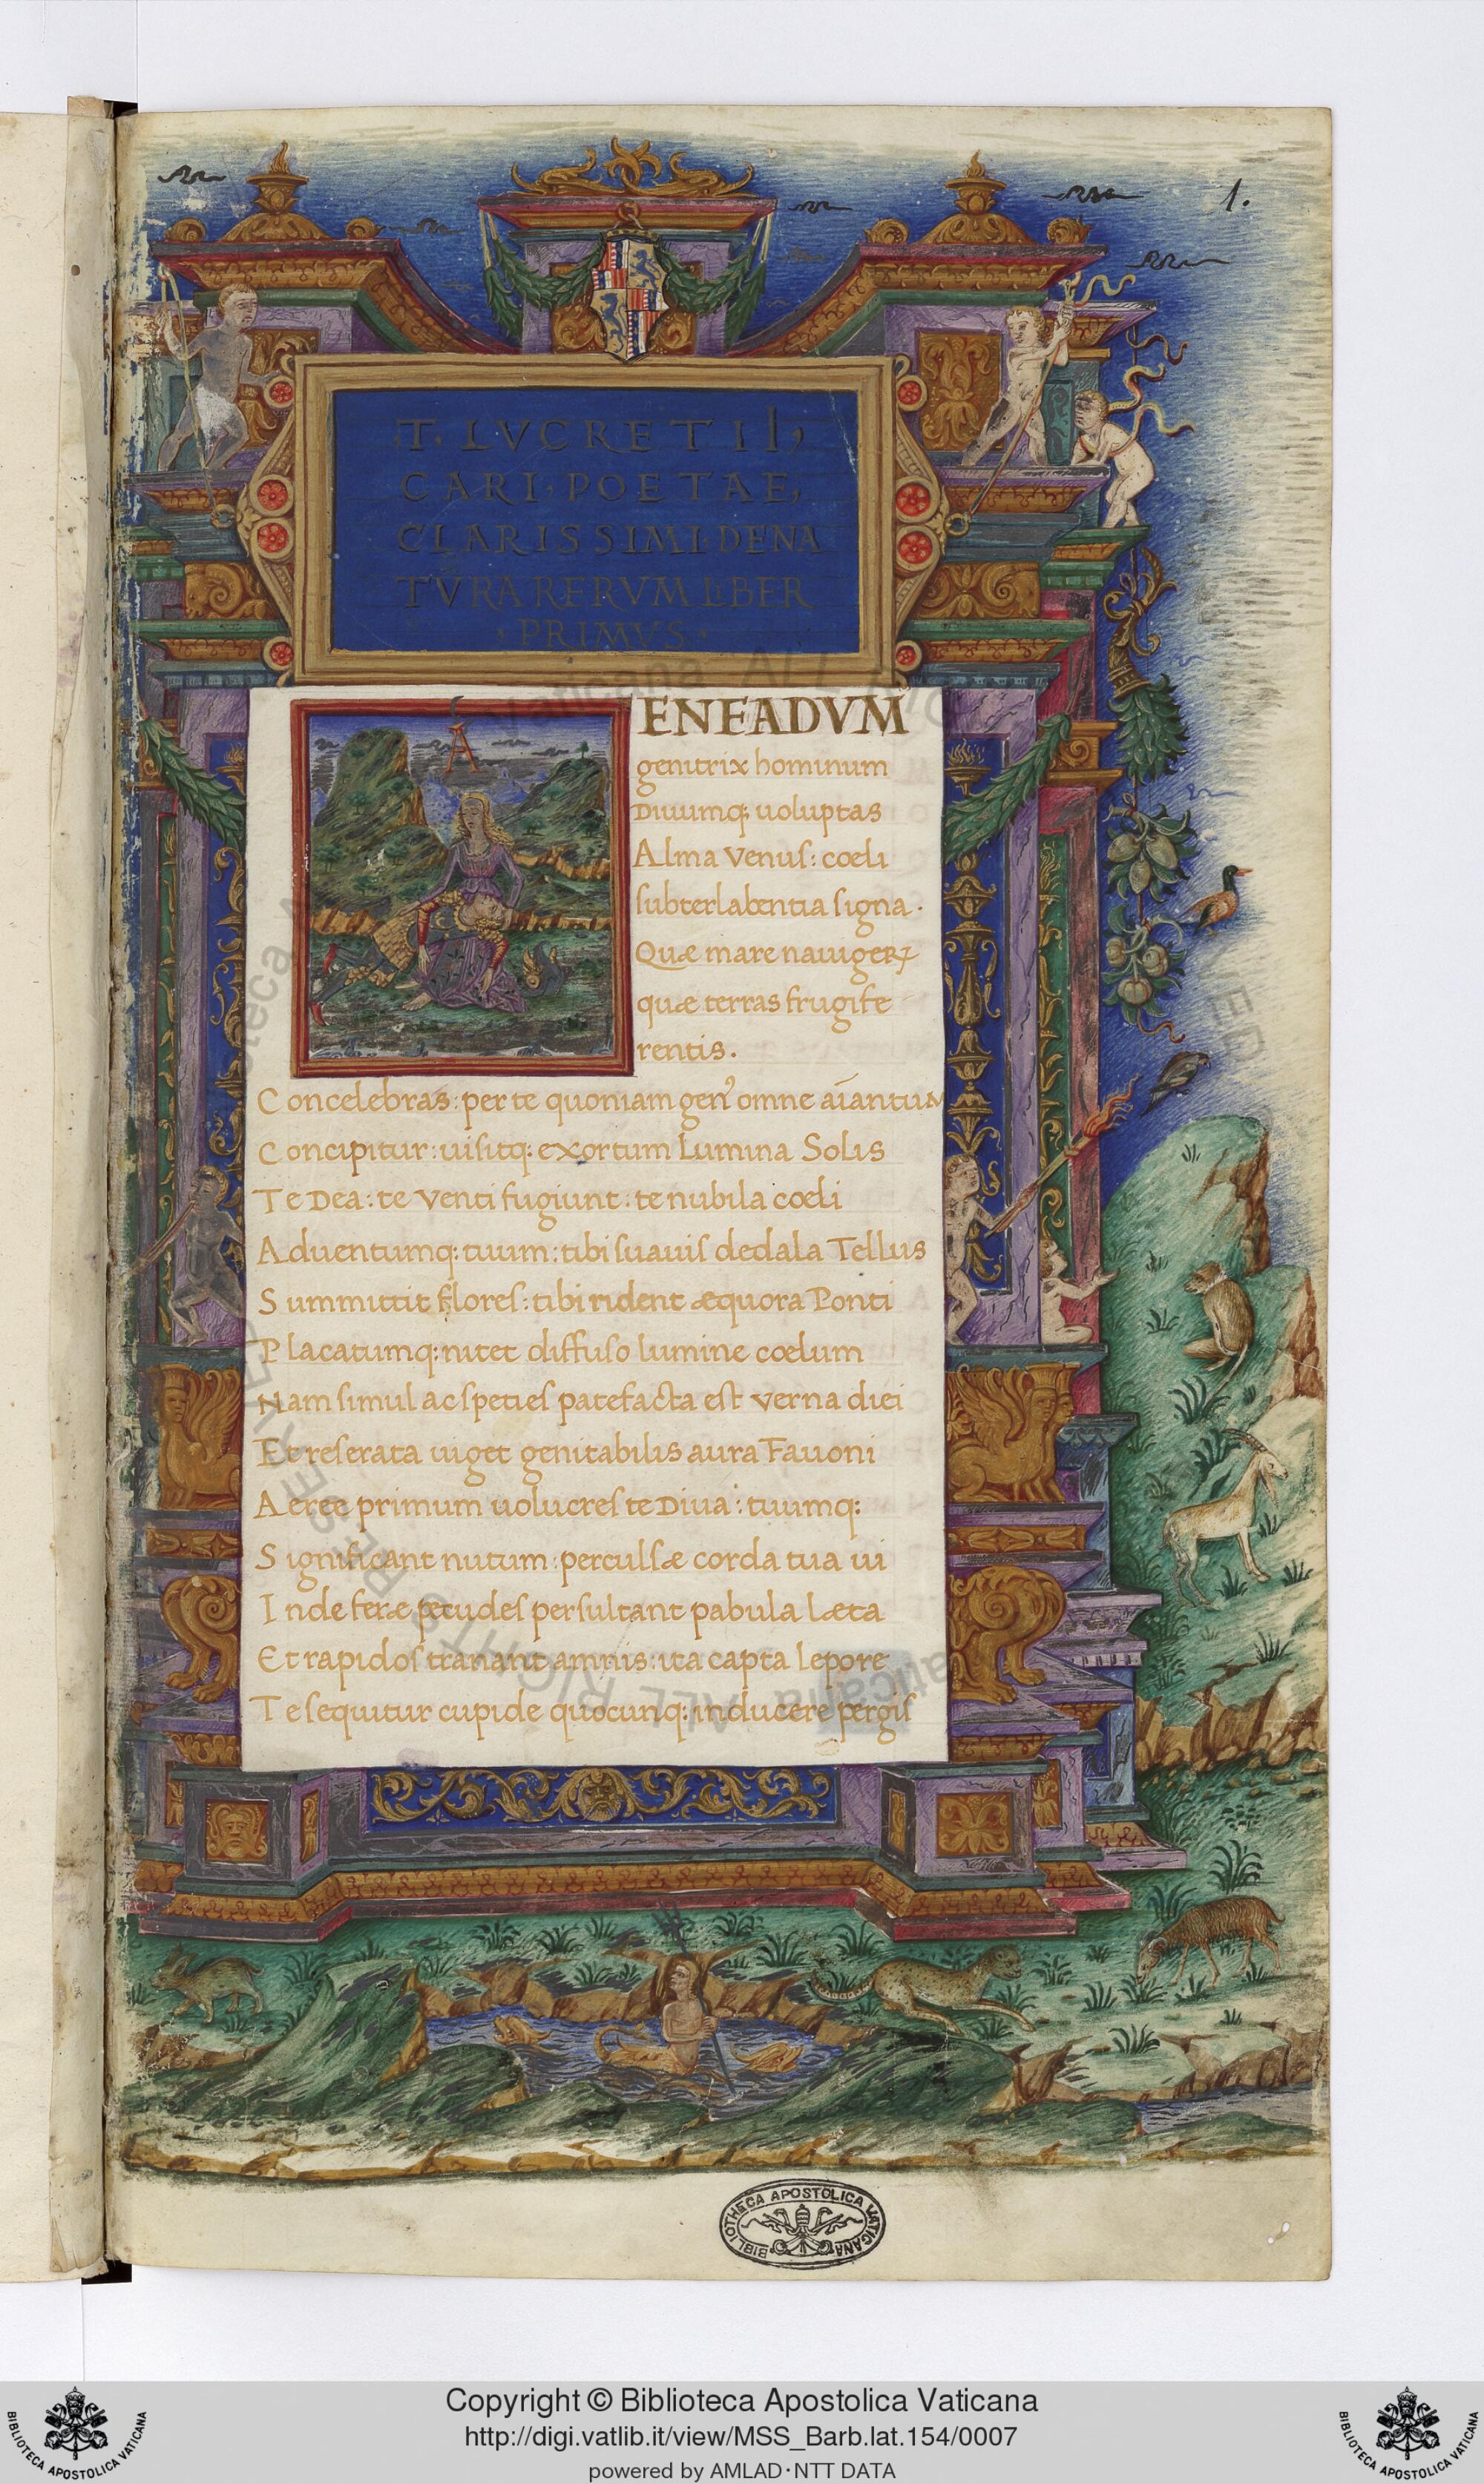 1.
T. LVCRETII,
CARI, POETAE,
CLARISSIMI. DE NA
TVRA RERVM LIBER
, PRIMVS ,
A
ENEADVM
genitrix hominum
Diuumq; uoluptas
Alma Venus: cœli
subterlabentia signa.
Quæ mare nauigeRꝜ
quæ terras frugife
rentis.
Concelebras: per te quoniam gen᾽ omne aīantum
Concipitur: uisitq; exortum Lumina Solis
Te Dea: te Venti fugiunt: te nubila cœli
Aduentumq; tuum: tibi suauis dedala Tellus
Summittit flores: tibi rident æquora Ponti
Placatumq; nitet diffuso lumine cœlum
Nam simul ac speties patefacta est verna diei
Et reserata uiget genitabilis aura Fauoni
Aeree primum uolucres te Diua: tuumq:
Significant nutum: perculsæ corda tua ui
Inde feræ pecudes persultant pabula læta
Et rapidos tranant amnis: ita capta lepore
Te sequitur cupide quocunq; inducere pergis
BIBLIOTHECA APOSTOLICA VATICANA
Copyright © Biblioteca Apostolica Vaticana
http://digi.vatlib.it/view/MSS_Barb.lat.154/0007
powered by AMLAD·NTT DATA
BIBLIOTECA APOSTOLICA VATICANA
BIBLIOTECA APOSTOLICA VATICANA